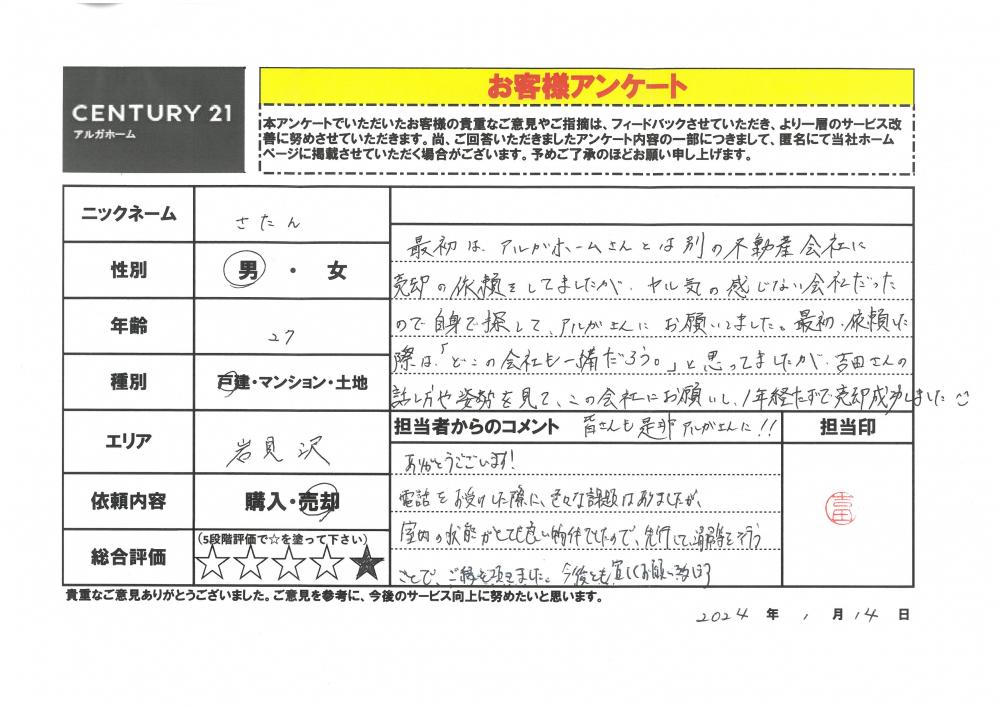 CENTURY 21
アルガホーム
お客様アンケート
本アンケートでいただいたお客様の貴重なご意見やご指摘は、フィードバックさせていただき、より一層のサービス改
善に努めさせていただきます。尚、ご回答いただきましたアンケート内容の一部につきまして、匿名にて当社ホーム
ページに掲載させていただく場合がございます。予めご了承のほどお願い申し上げます。
ニックネーム
さたん
性別
男・女
年齢
27
種別
戸建・マンション・土地
エリア
岩見沢
依頼内容
購入・売却
総合評価
(5段階評価で☆を塗って下さい)
☆☆☆☆★
最初は、アルガホームさんとは別の不動産会社に
売却の依頼をしてましたが、ヤル気の感じない会社だった
ので自身で探して、アルガさんにお願いしました。最初、依頼した
際は、「どこの会社も一緒だろう。」と思ってましたが、吉田さんの
話し方や姿勢を見て、この会社にお願いし、1年経たずで売却成功しました
皆さんも是非アルガさんに!!
担当者からのコメント
担当印
ありがとうございます!
電話をお受けした際に、色々な課題はありましたが、
室内の状態がとても良い物件でしたので、先行して
ことで、ご縁を頂きました。今後とも宜しくお願い致します
吉田
貴重なご意見ありがとうございました。ご意見を参考に、今後のサービス向上に努めたいと思います。
2024 年 1 月 14 日